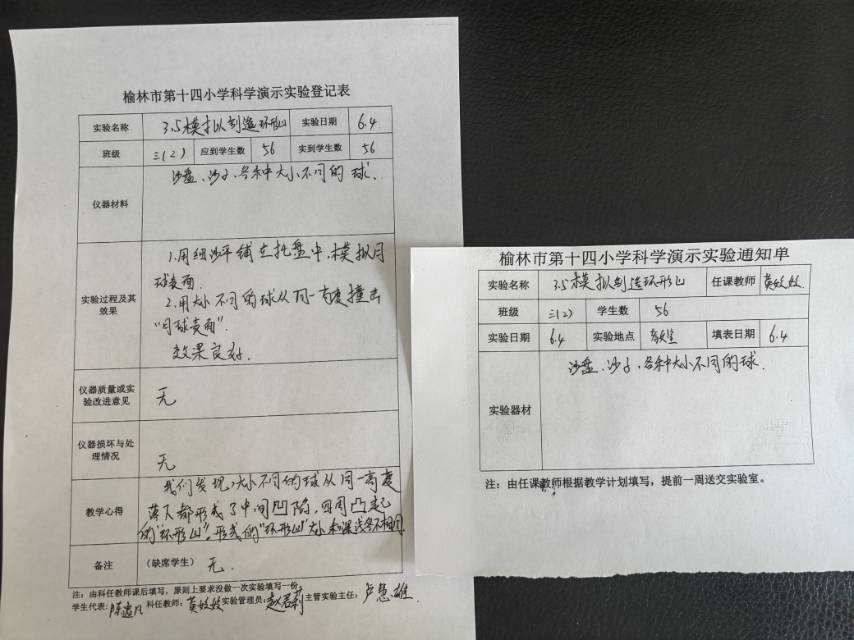 榆林市第十四小学科学演示实验登记表
实验名称 3.5模拟制造环形山 实验日期 6.4
班级 三(2) 应到学生数 56 实到学生数 56
仪器材料 沙盘、沙子、各种大小不同的球.
实验过程及其效果
1.用细沙平铺在托盘中,模拟月
球表面.
2.用大小不同的球从同一高度撞击
"月球表面".
效果良好.
仪器质量或实验改进意见 无
仪器损坏与处理情况 无
教学心得
我们发现,大小不同的球从同一高度
落下都形成了中间凹陷,四周凸起
的"环形山",形成的"环形山"大小和深浅各不相同.
备注 (缺席学生) 无.
注:由科任教师课后填写,原则上要求没做一次实验填写一份
学生代表: 科任教师: 实验管理员: 主管实验主任: 卢慧雄
榆林市第十四小学科学演示实验通知单
实验名称 3.5模拟制造环形山 任课教师
班级 三(2) 学生数 56
实验日期 6.4 实验地点 教室 填表日期 6.4
实验器材 沙盘、沙子、各种大小不同的球.
注:由任课教师根据教学计划填写,提前一周送交实验室。